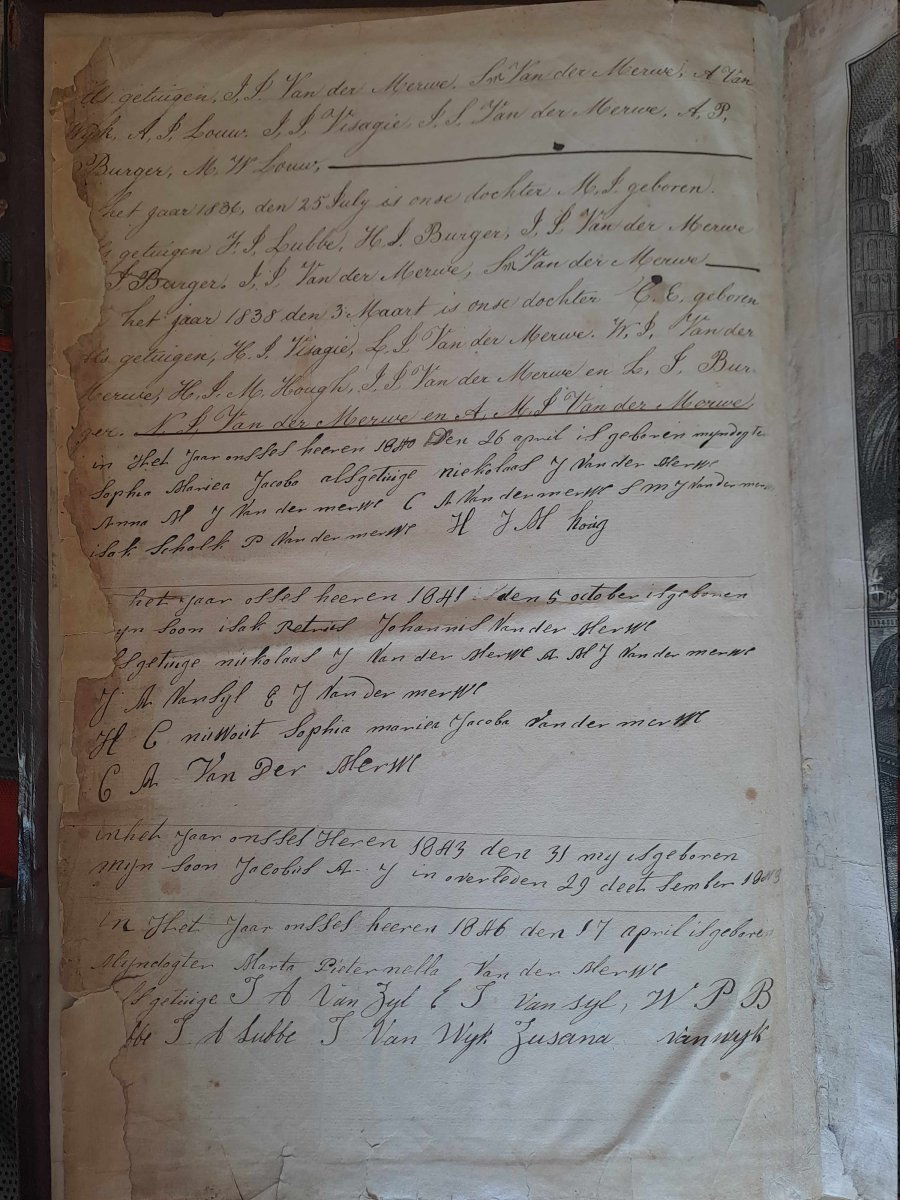 ls getuigen, J. J. Van der Merwe. Sm Van der Merwe, A Van
Wyk, A, J, Louw. J, J, Visagie, J. S. Van der Merwe, A, P,
Burger, M. W Louw,
het jaar 1836, den 25 July is onse dochter M. J. geboren.
ls getuigen F. J, Lubbe, H. J. Burger, J, J, Van der Merwe
J Burger. J, J, Van der Merwe, Sm Van der Merwe
het jaar 1838 den 3 Maart is onse dochter C. E. geboren
ls getuigen, H. J. Visagie, L. J, Van der Merwe. W, J, Van der
Merwe, H, J. M. Hough, J, J Van der Merwe en L. J. Bur-
ger. N. J, Van der Merwe en A. M. J Van der Merwe,
in Het Jaar onsses heeren 1840 Den 26 april is geboren myndogte
Sophia Mariea Jacoba alsgetuige niekolaas J Van der Merwe
Anna M J Van der merwe C A Vandermerwe S M J Vandermer
isak Schalk P Vandermerwe H J M houg
het jaar osses heeren 1841 den 5 october isgeboren
yn soon isak Petrus Johannis Van der Merwe
lsgetuige niekolaas J Van der Merwe A M J Van der merwe
J A Vansyl E J Van der merwe
H C nuwout Sophia mariea Jacoba Van der merwe
C A Van Der Merwe
in het Jaar onsses Heren 1843 den 31 my isgeboren
mijn soon Jacobus A J in overleden 29 deet sember 1843
in Het Jaar onsses heeren 1846 den 17 april isgeboren
Mijndogter Marta Pieternella Van der Merwe
lsgetuige J A Van Zyl E J Van syl, W P B
bbe J A Lubbe J Van Wyk Zusana van wyk